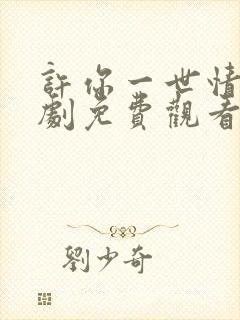 許你一世情
劇免費觀看
劉少奇